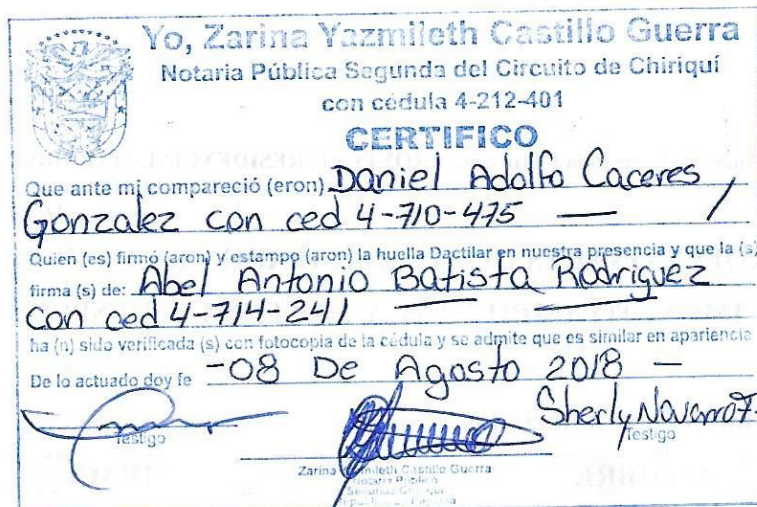 Yo, Zarina Yazmileth Castillo Guerra
Notaria Pública Segunda del Circuito de Chiriquí
con cédula 4-212-401
CERTIFICO
Que ante mi compareció (eron) Daniel Adolfo Caceres
Gonzalez con ced 4-710-475 — /
Quien (es) firmó (aron) y estampo (aron) la huella Dactilar en nuestra presencia y que la (s)
firma (s) de: Abel Antonio Batista Rodriguez
con ced 4-714-241 — —
ha (n) sido verificada (s) con fotocopia de la cédula y se admite que es similar en apariencia
De lo actuado doy fe -08 De Agosto 2018 —
Sherly Navarro
Testigo
Testigo
Zarina Yazmileth Castillo Guerra
Notaria Pública
Segunda Chiriquí
República de Panamá